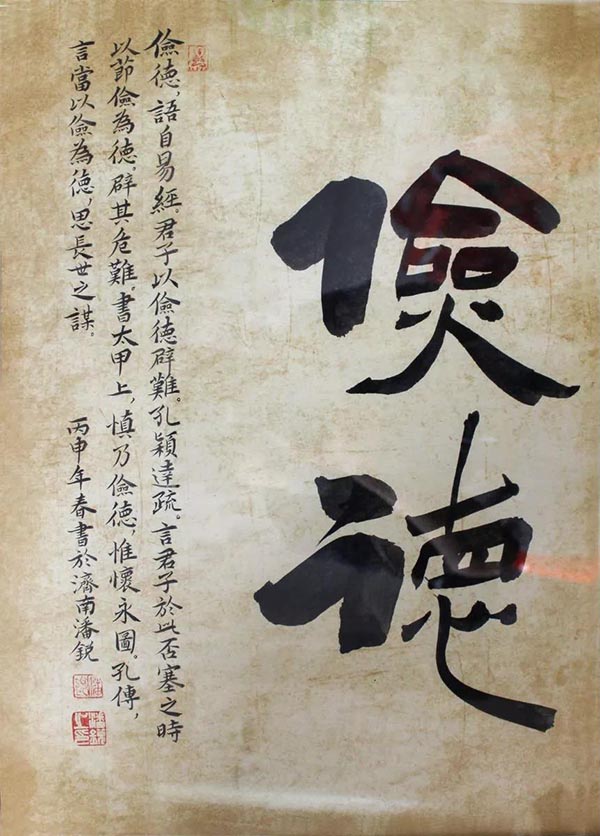 儉德
儉德，語自易經。君子以儉德辟難。孔穎達疏。言君子於此否塞之時
以節儉為德，辟其危難。書太甲上，慎乃儉德，惟懷永圖。孔傳，
言當以儉為德，思長世之謀。
丙申年春書於濟南潘銳